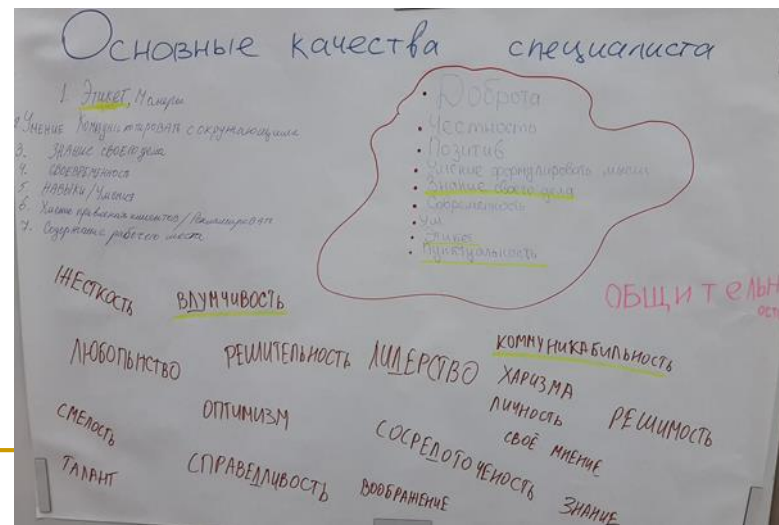 Основные качества специалиста
1. Этикет, Манеры
2 Умение Коммуникировать с окружающими
3. Знание своего дела
4. Своевременность
5 Навыки/Умения
6. привлекая клиентов/Рекламировать
7. Содержание рабочего места
• Доброта
• Честность
• Позитив
• Умение формулировать мысли
• Знание своего дела
• Современность
• Ум
• Этикет
• Пунктуальность
ОБЩИТеЛЬН
ОСТЬ
ЖЕСТКОСТЬ
ВДУМЧИВОСТЬ
ЛЮБОПЫТСТВО
РЕШИТЕЛЬНОСТЬ
ЛИДЕРСТВО
КОММУНИКАБИЛЬНОСТЬ
ХАРИЗМА
ЛИЧНОСТЬ
СВОЁ МНЕНИЕ
РЕШИМОСТЬ
СМЕЛОСТЬ
ОПТИМИЗМ
СОСРЕДОТОЧЕНОСТЬ
ТАЛАНТ
СПРАВЕДЛИВОСТЬ
ВООБРАЖЕНИЕ
ЗНАНИЕ